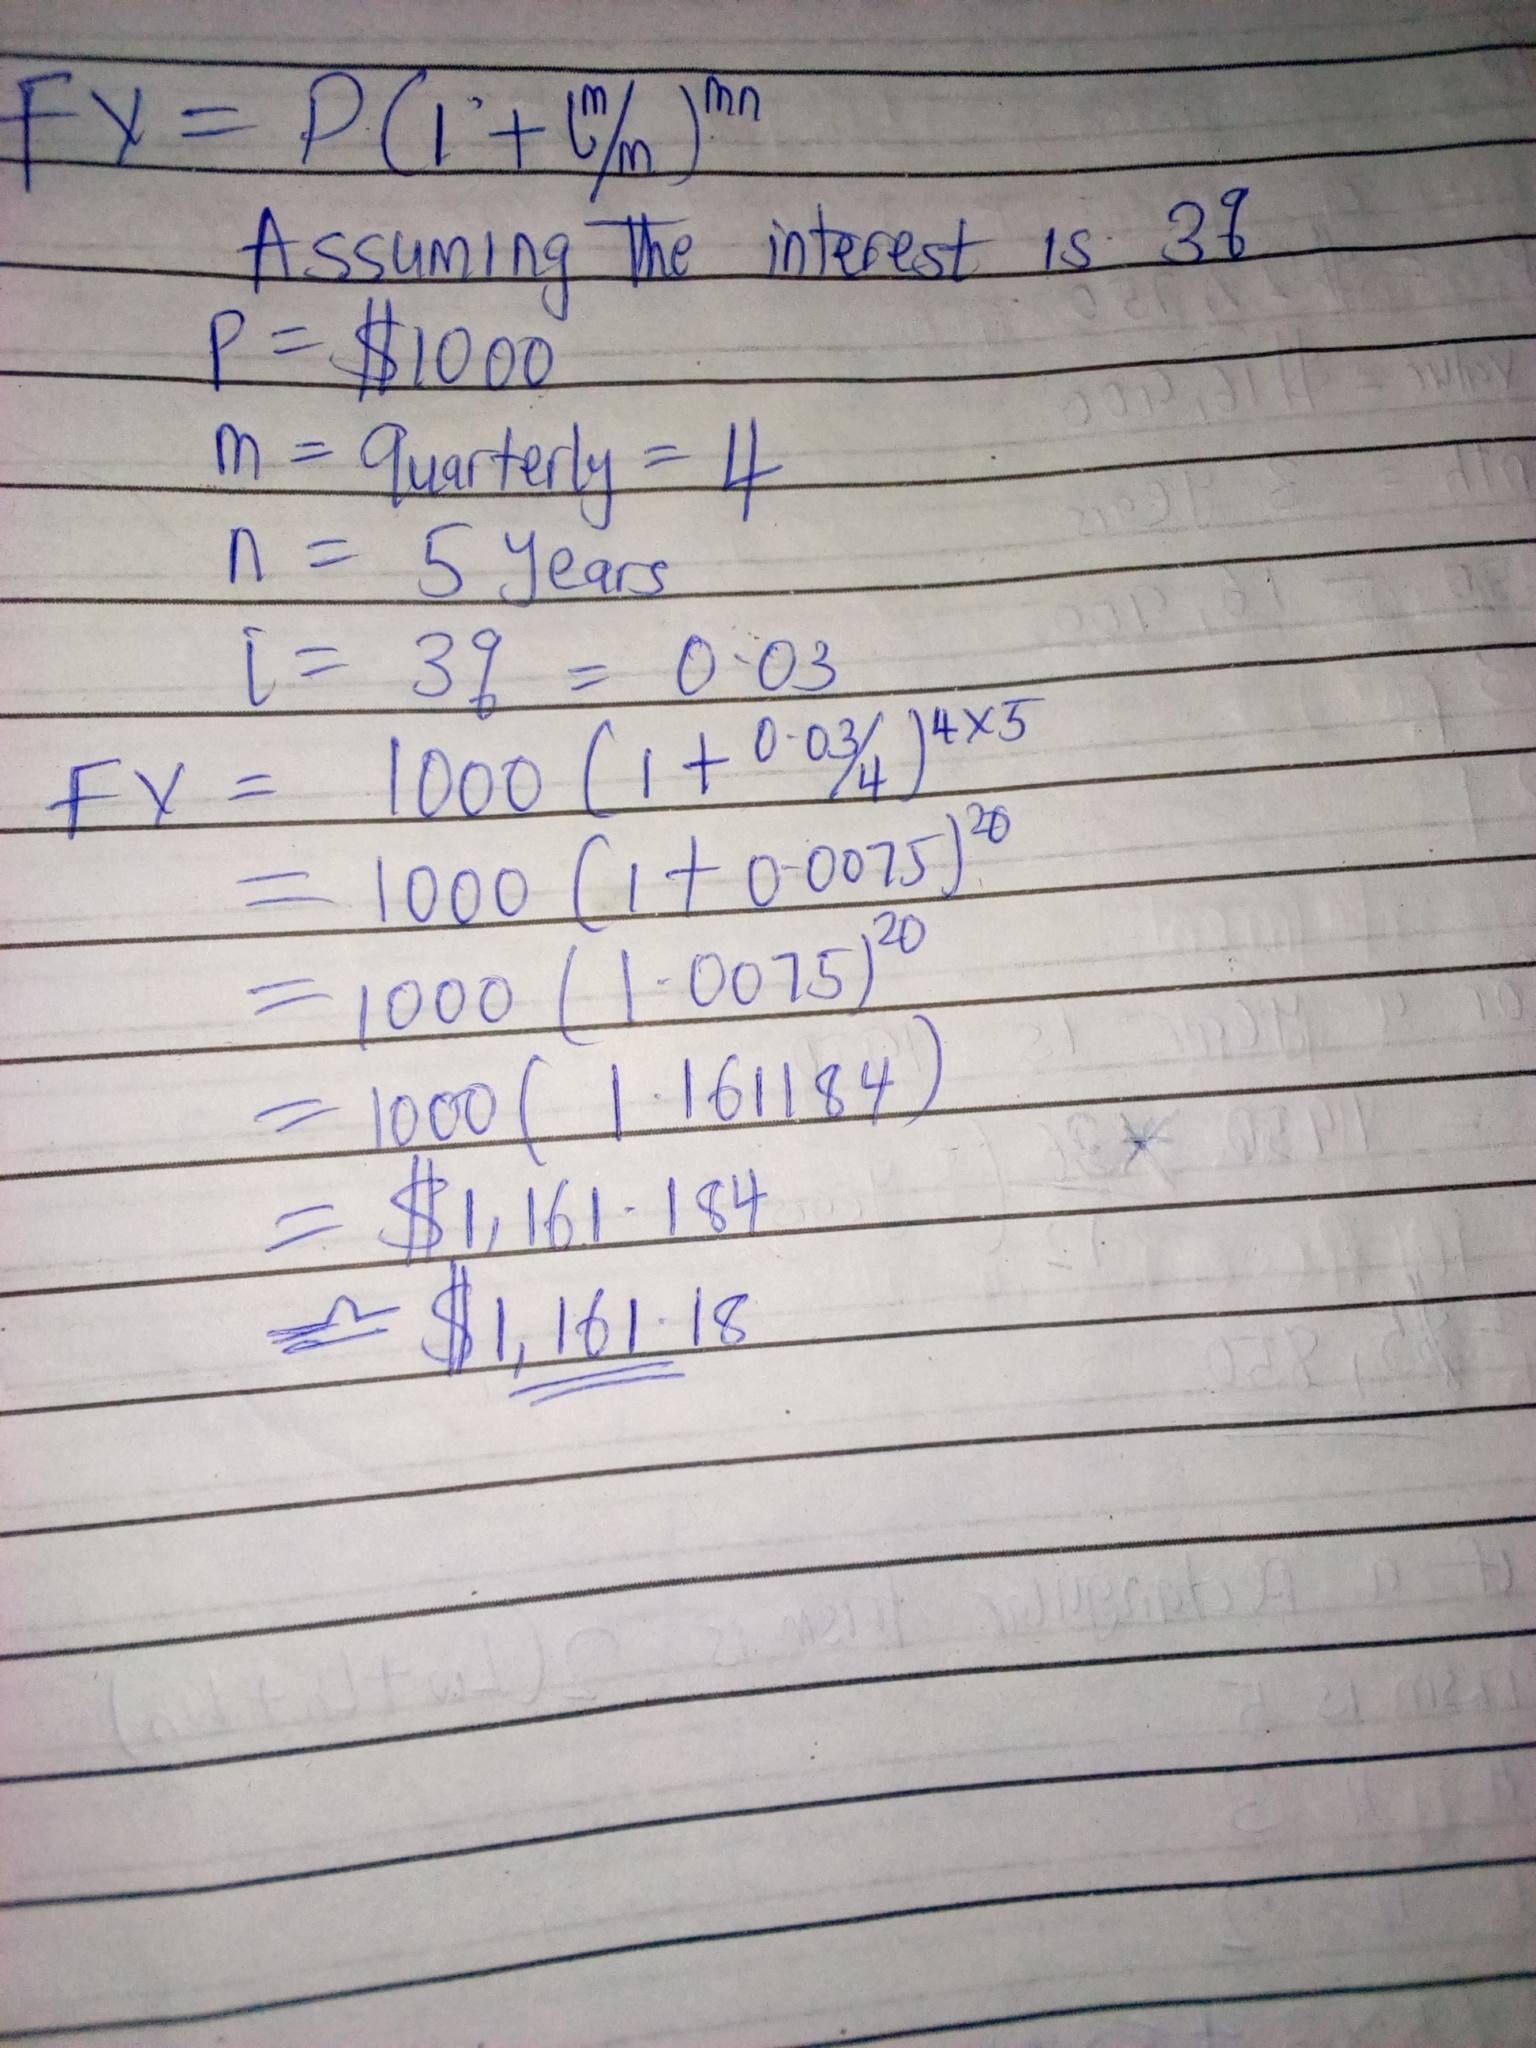 FV = P(1 + i^m/m)^mn
Assuming The interest is 3%
P = $1000
m = quarterly = 4
n = 5 years
i = 3% = 0.03
FV = 1000 (1 + 0.03/4)^4×5
= 1000 (1 + 0.0075)^20
= 1000 (1.0075)^20
= 1000 (1.161184)
= $1,161.184
≃ $1,161.18